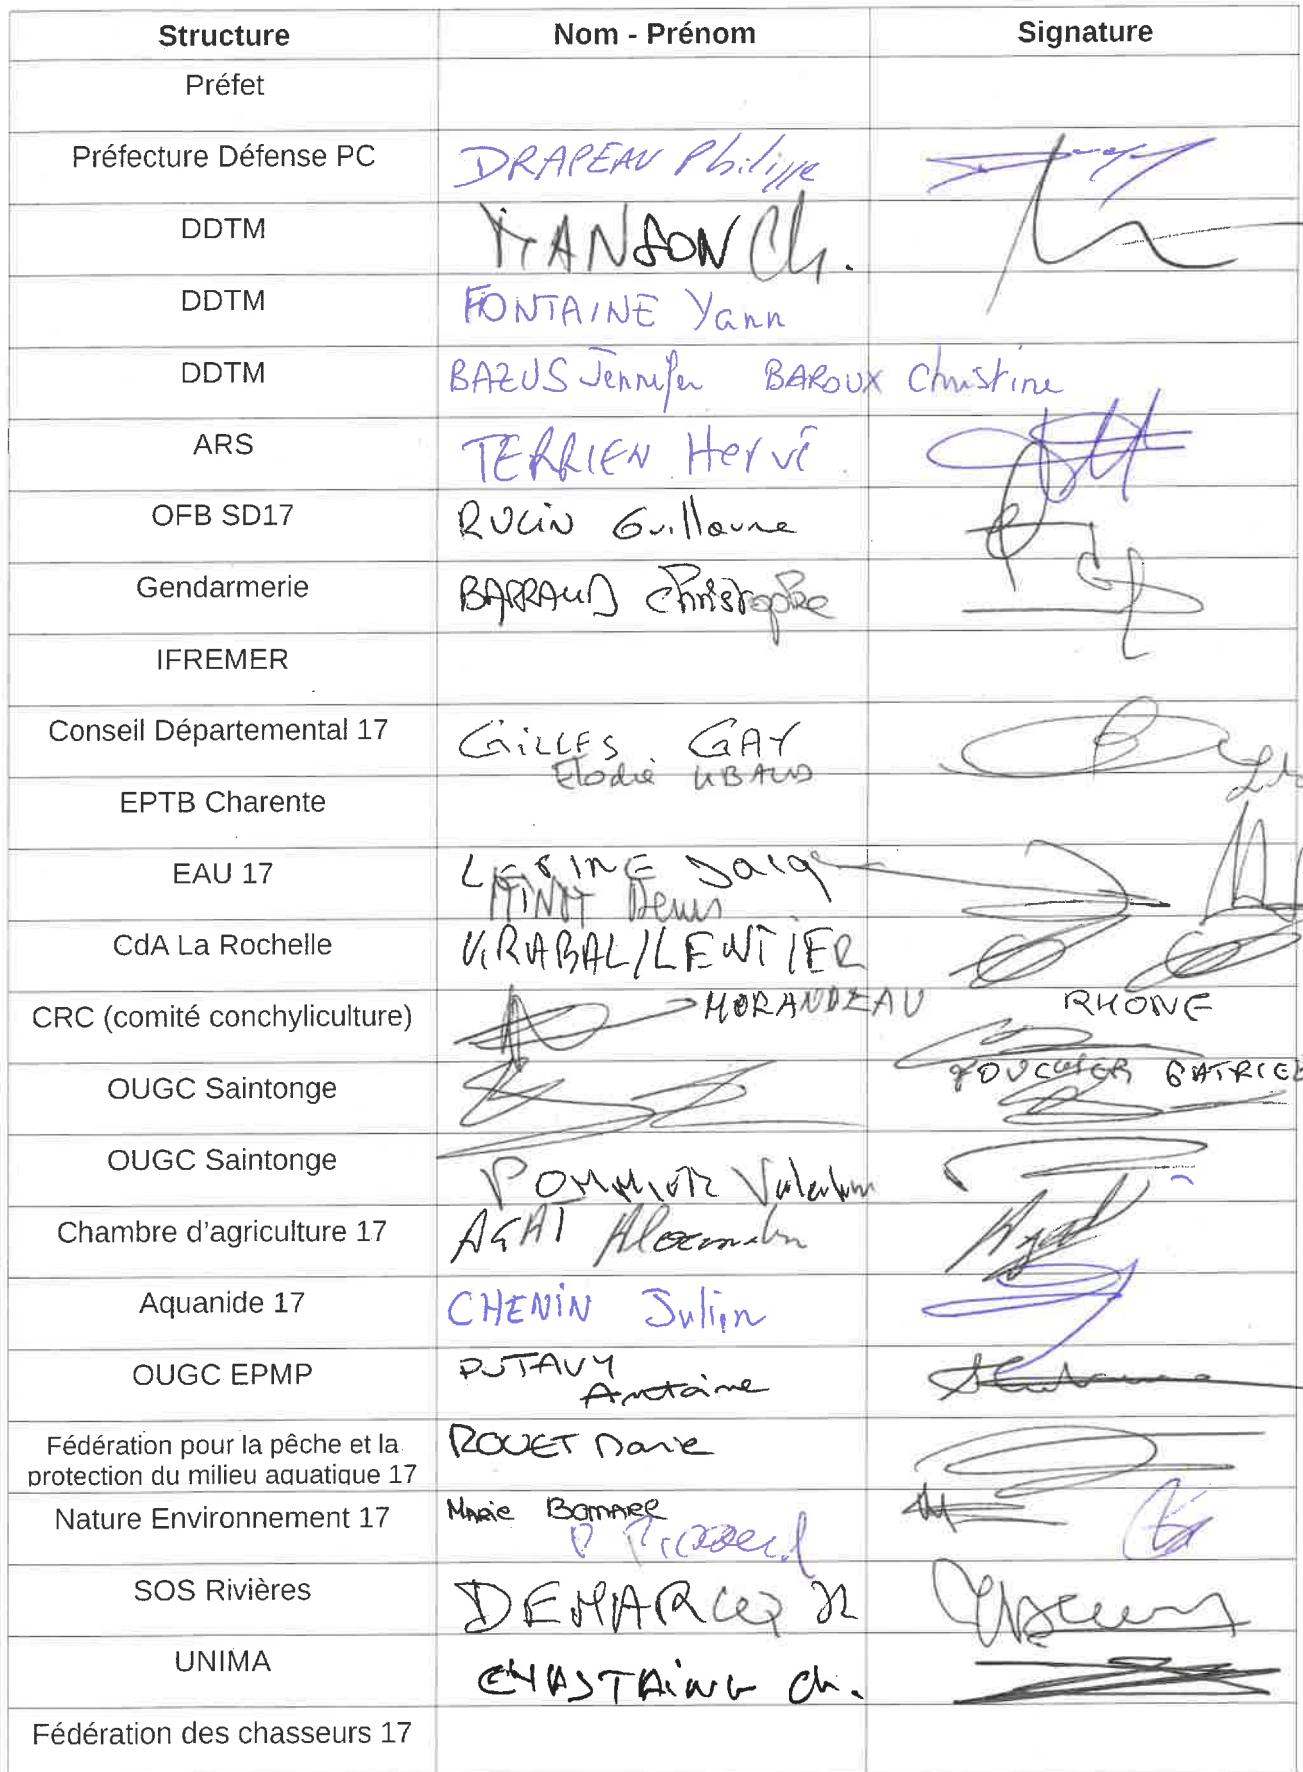 Structure Nom - Prénom Signature
Préfet
Préfecture Défense PC DRAPEAU Philippe
DDTM MANSON Ch.
DDTM FONTAINE Yann
DDTM BAZUS Jennifer BAROUX Christine
ARS TERRIEN Hervé
OFB SD17 RULIN Guillaume
Gendarmerie BARRAUD Christophe
IFREMER
Conseil Départemental 17 GILLES GAY
Elodie UBAUD
EPTB Charente
EAU 17 LEPINE Jacq
MINOT Denis
CdA La Rochelle VIRABAL/LENTIER
CRC (comité conchyliculture) MORANDEAU RHONE
OUGC Saintonge FOUCHER BATRICE
OUGC Saintonge POMMIER Valentin
Chambre d'agriculture 17 AGAT Alexandre
Aquanide 17 CHENIN Julien
OUGC EPMP PUTAVY
Antoine
Fédération pour la pêche et la ROUET Marie
protection du milieu aquatique 17
Nature Environnement 17 Marie BOMARE
P Picoreau
SOS Rivières DEMARCQ JL
UNIMA CHASTAING Ch.
Fédération des chasseurs 17